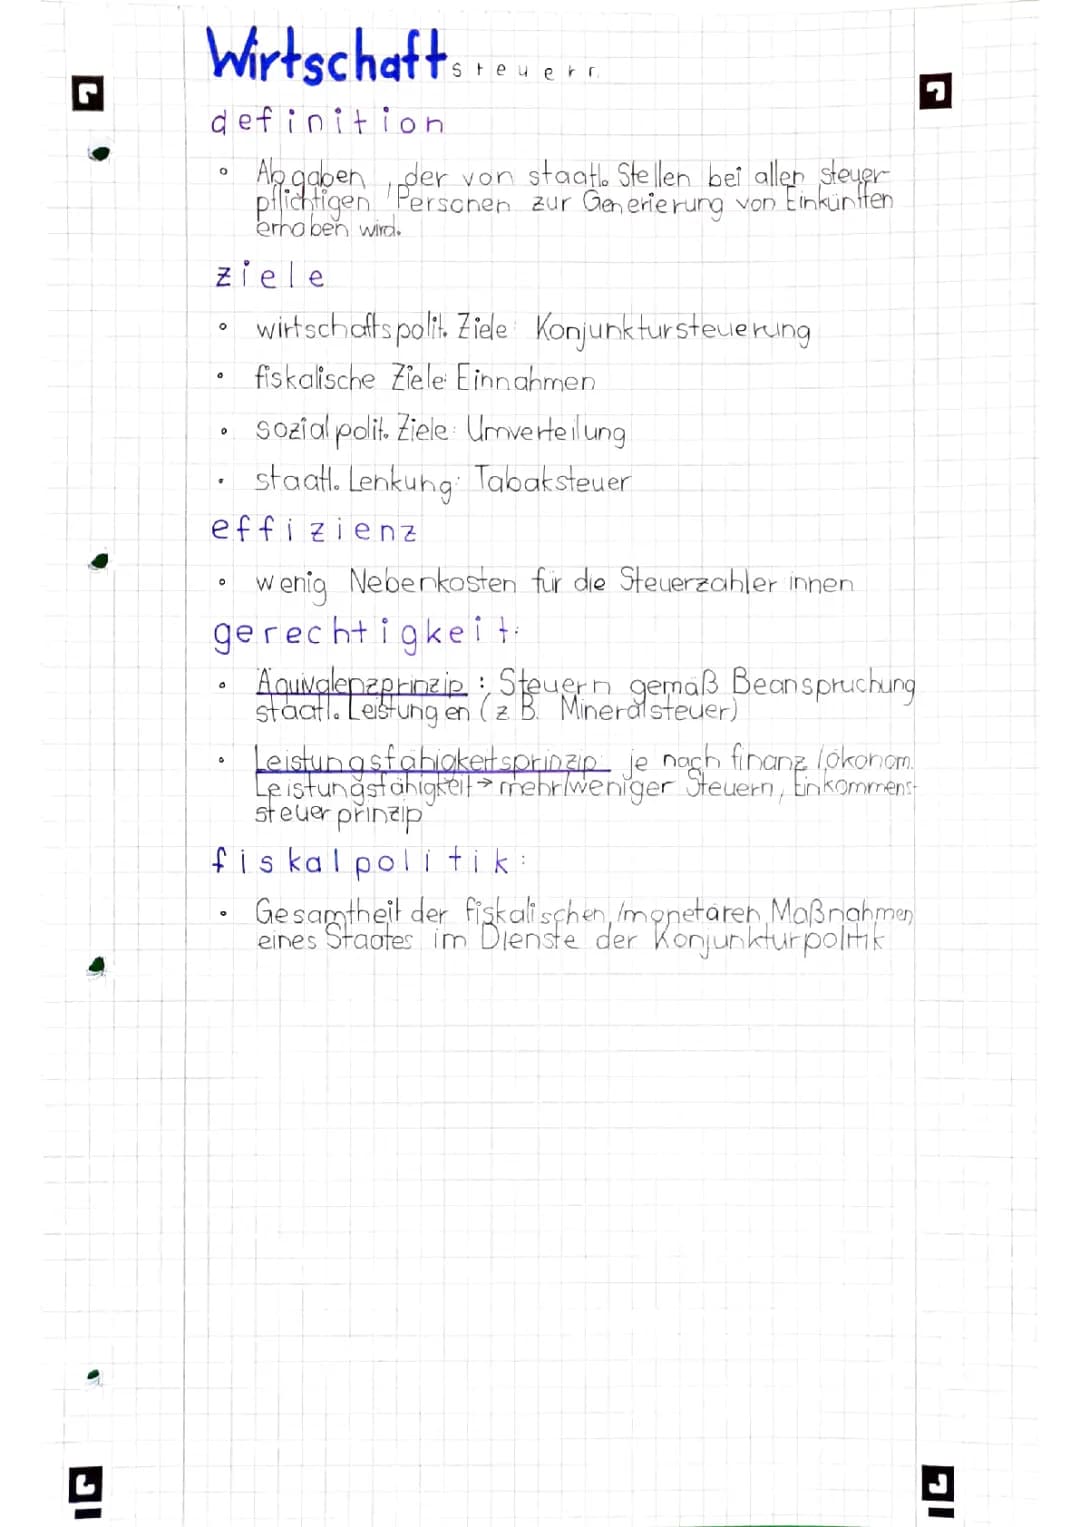 Wirtschaft steuern
definition
• Abgaben, der von staatl. Stellen bei allen steuer-
pflichtigen Personen zur Generierung von Einkünften
erhoben wird.
ziele
• wirtschaftspolit. Ziele: Konjunktursteuerung
• fiskalische Ziele: Einnahmen
• sozialpolit. Ziele: Umverteilung
• staatl. Lenkung: Tabaksteuer
effizienz
• wenig Nebenkosten für die Steuerzahler innen
gerechtigkeit:
• Äquivalenzprinzip: Steuern gemäß Beanspruchung
staatl. Leistungen (z.B. Mineralsteuer)
• Leistungsfähigkeitsprinzip: je nach finanz./ökonom.
Leistungsfähigkeit → mehr/weniger Steuern, Einkommens-
steuerprinzip
fiskalpolitik:
• Gesamtheit der fiskalischen/monetären Maßnahmen
eines Staates im Dienste der Konjunkturpolitik